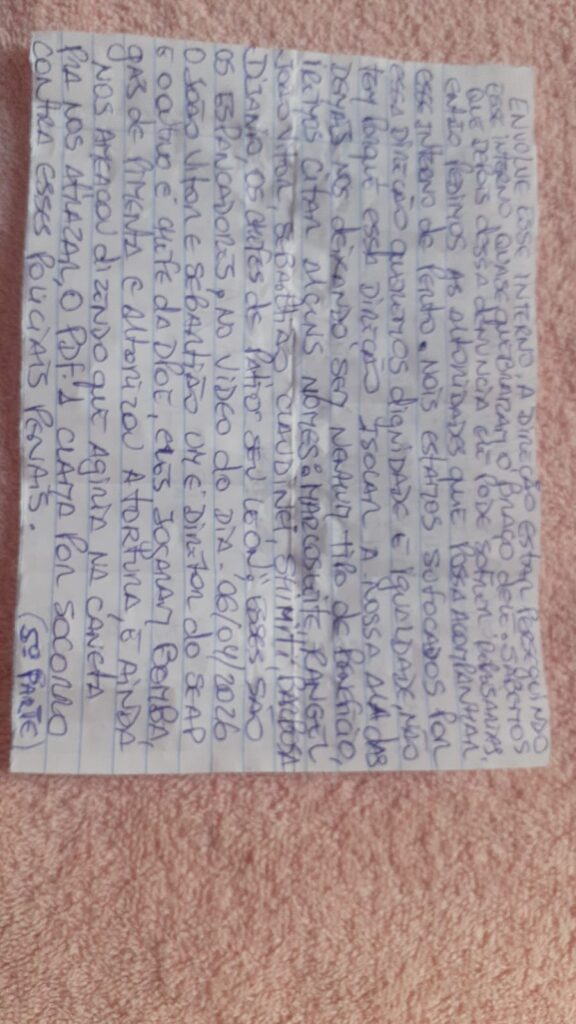 ENVOLVE ESSE INTERNO, A DIREÇÃO ESTAR PERSEGUINDO
ESSE INTERNO QUASE QUEBRARAM O BRAÇO DELE. SABEMOS
QUE DEPOIS DESSA DENUNCIA ELE PODE SOFRER REPRESALIAS,
ENTÃO PEDIMOS AS ALTORIDADES QUE POSSA ACOMPANHAR
ESSE INTERNO DE PERTO. NOIS ESTAMOS SUFOCADOS POR
ESSA DIREÇÃO QUEREMOS DIGNIDADE E IGUALDADE, NÃO
TEM PORQUE ESSA DIREÇÃO ISOLAR A NOSSA ALA DAS
DEMAIS NOS DEIXANDO SEM NENHUM TIPO DE
IREMOS CITAR ALGUNS NOMES: MARCOS RANGEL
JOÃO VITOR, SEBASTIÃO, CLAUDINEI, BARBOSA
OS CHEFES DE PATIO: SEU LEON, ESSES SÃO
OS ESPANCADORES, NO VIDEO DO DIA - 06/04/2026
O JOÃO VITOR E SEBASTIÃO UM É DIRETOR DO SEAP
E O OUTRO É CHEFE DA DPOE, ELES JOGARAM BOMBA,
GÁS DE PIMENTA E ALTORIZOU A TORTURA, E AINDA
NOS AMEAÇOU DIZENDO QUE AGIRIA NA CANETA
PRA NOS ATRAZAR, O PDF.1 CLAMA POR SOCORRO
CONTRA ESSES POLICIAIS PENAIS.
(5º PARTE)